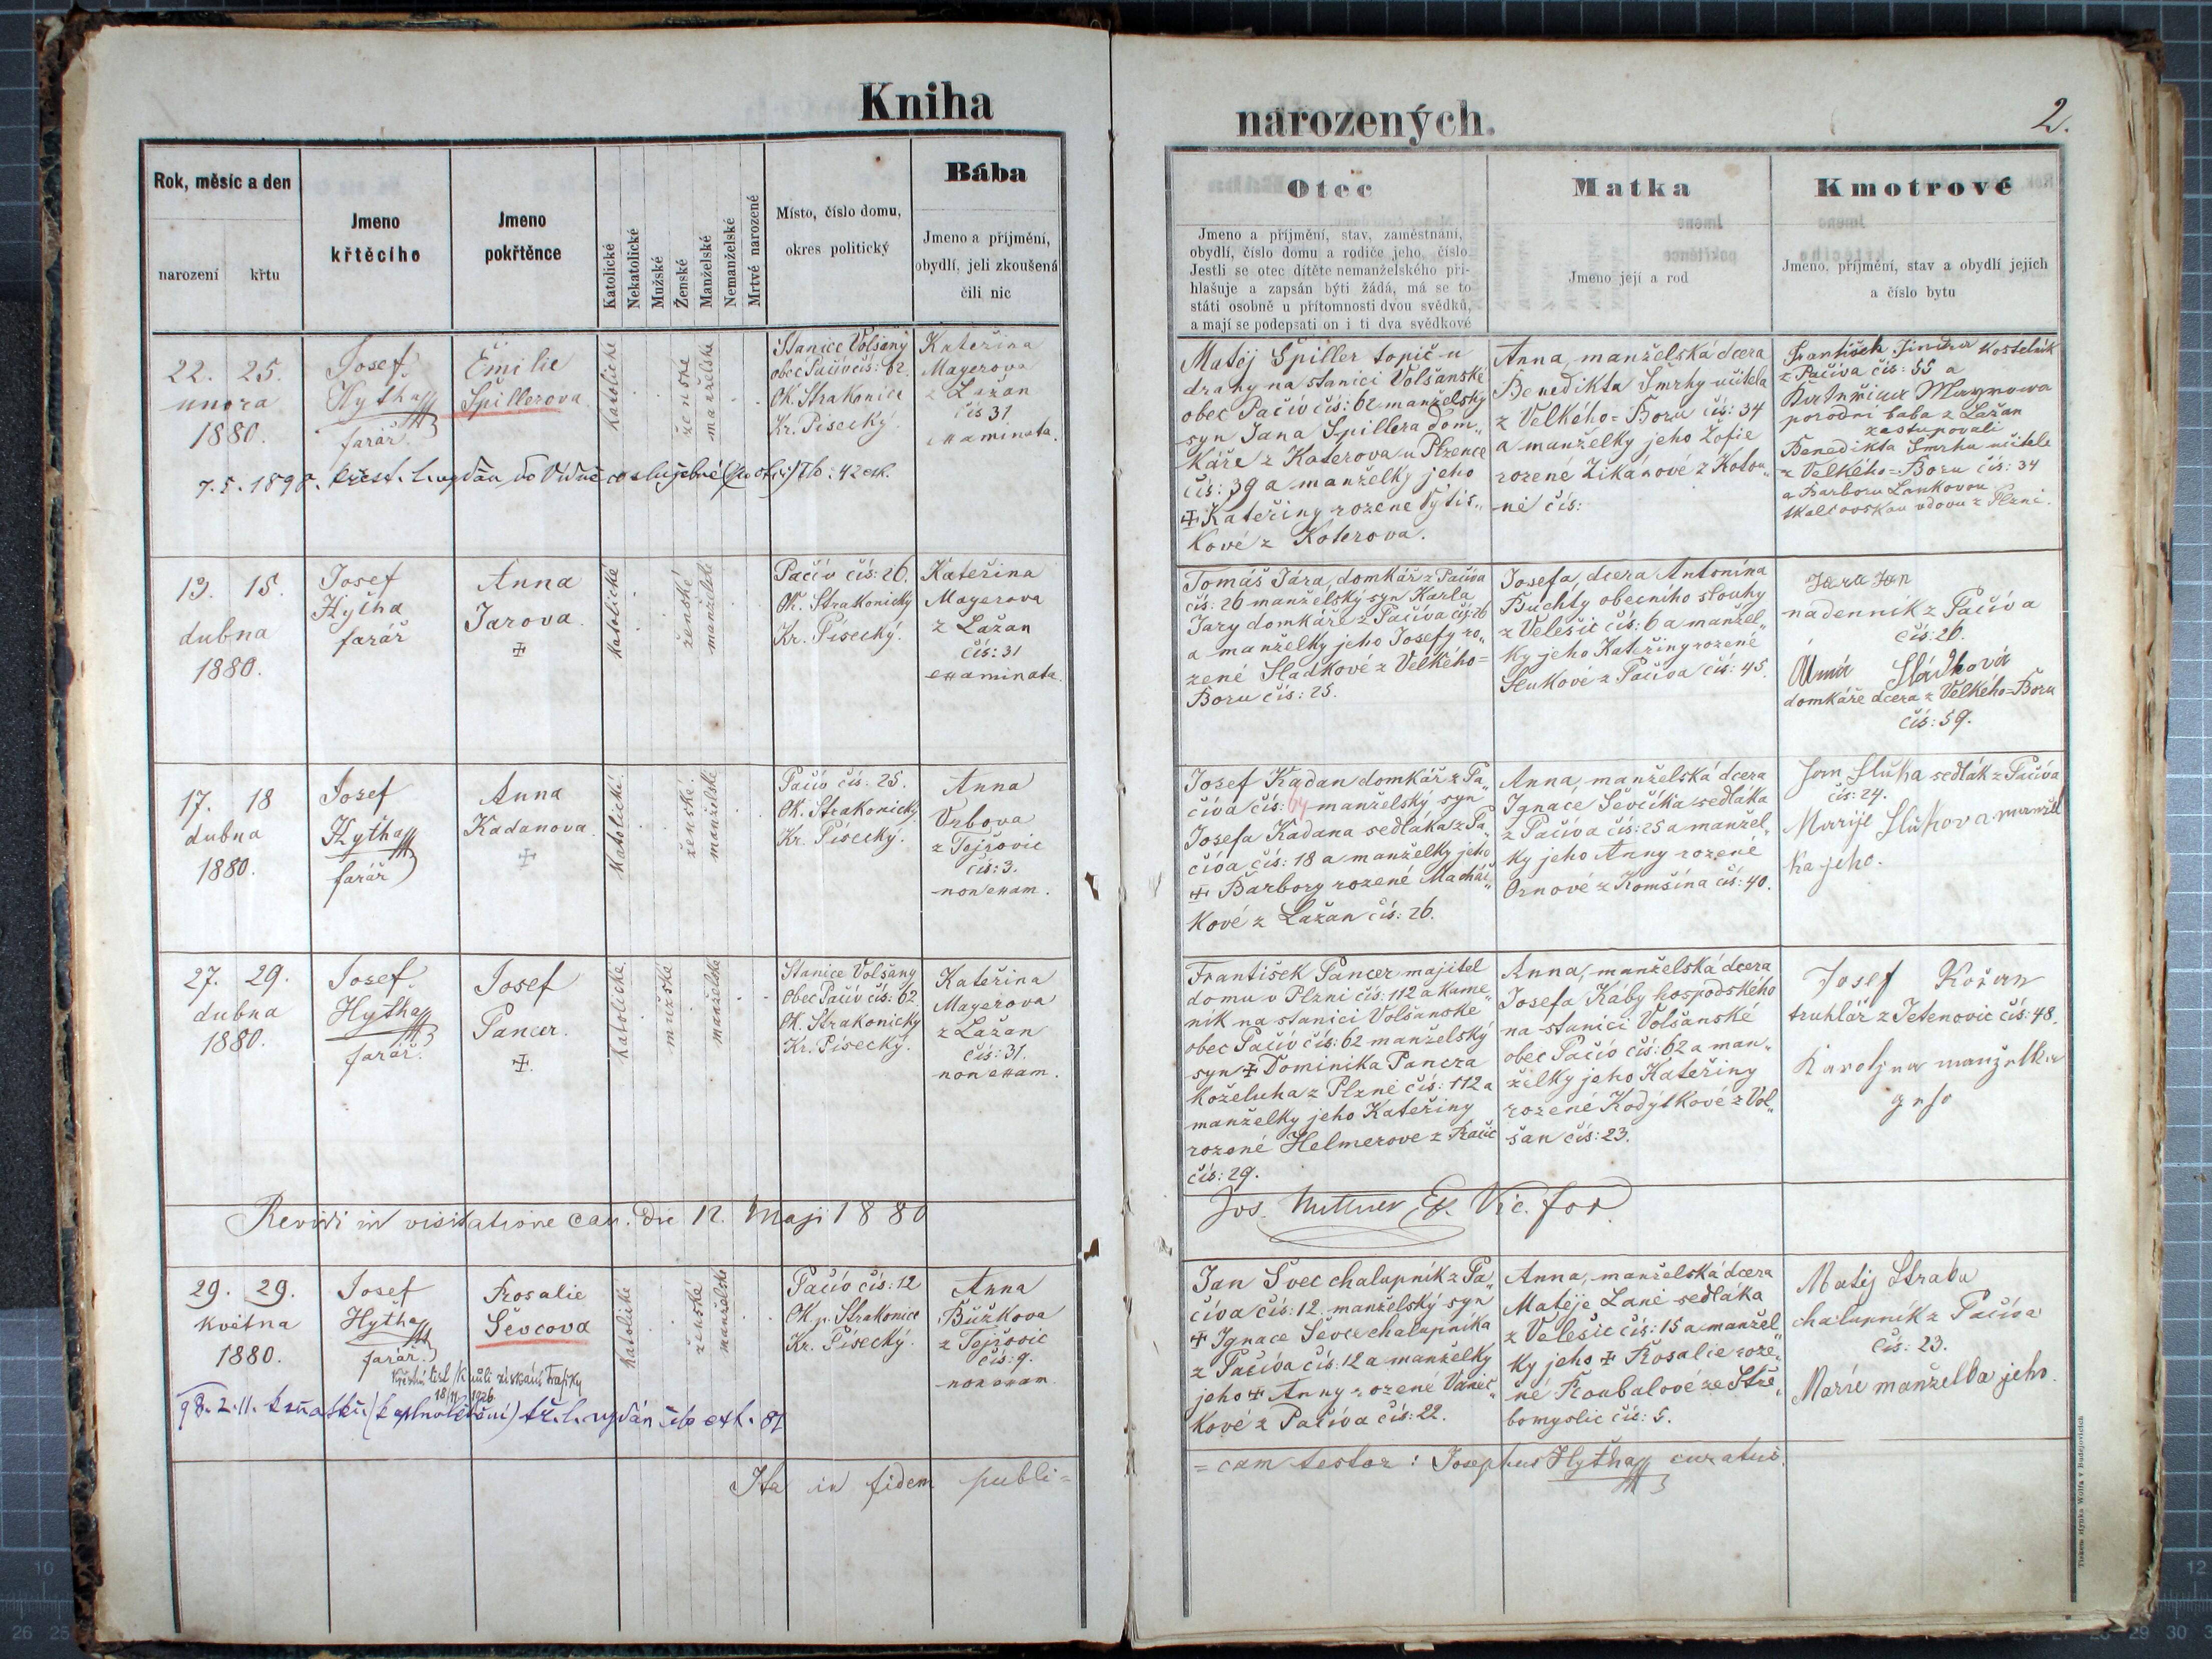 Kniha
narozených.
2.
Rok, měsíc a den
narození
křtu
Jmeno
křtěcího
Jmeno
pokřtěnce
Katolické
Nekatolické
Mužské
Ženské
Manželské
Nemanželské
Mrtvé narozené
Místo, číslo domu,
okres politický
Bába
Jmeno a přijmění,
obydlí, jeli zkoušená
čili nic
Otec
Jmeno a příjmění, stav, zaměstnání,
obydlí, číslo domu a rodiče jeho, číslo
Jestli se otec dítěte nemanželského při-
hlašuje a zapsán býti žádá, má se to
státi osobně u přítomnosti dvou svědků,
a mají se podepsati on i ti dva svědkové
Matka
Jmeno její a rod
Kmotrové
Jmeno, příjmění, stav a obydlí jejich
a číslo bytu
22. 25.
února
1880.
Josef
Hytha
farář
Emilie
Špillerova
katolické
ženské
manželské
Stanice Volšany
obec Pačív čís: 62.
Ok. Strakonice
Kr. Písecký.
Kateřina
Mayerova
z Lažan
čís 31
examinata.
Matěj Špiller topič u
drahy na stanici Volšanské
obec Pačív čís: 62 manželský
syn Jana Spillera dom„
káře z Koterova u Plzence
čís: 39 a manželky jeho
✝ Kateřiny rozene Vytis„
kové z Koterova.
Anna, manželská dcera
Benedikta Smrhy učitela
z Velkého=Boru čís: 34
a manželky jeho Žofie
rozené Zikánové z Kolou„
né čís:
František Jindra kostelník
z Pačíva čís: 55 a
Mayrowa
porodní baba z Lažan
zastupovali
Benedikta Smrhu učitele
z Velkého=Boru čís: 34
a Barboru Lankovou
vdovu z Plzni.
7. 5. 1898.
13. 15.
dubna
1880.
Josef
Hytha
farář
Anna
Jarova.
✝
katolické
ženské
manželské
Pačív čís: 26.
Ok. Strakonický
Kr. Písecký.
Kateřina
Mayerova
z Lažan
čís: 31
examinata.
Tomáš Jára, domkář z Pačíva
čís: 26 manželský syn Karla
Jary domkáře z Pačíva čís: 26
a manželky jeho Josefy ro„
zené Sladkové z Velkého=
Boru čís: 25.
Josefa, dcera Antonína
Buchty obecního slouhy
z Velešic čís: 6 a manžel„
ky jeho Kateřiny rozené
Slukové z Pačíva čís: 45.
Jara Jan
nadenník z Pačíva
čís: 26.
Anna Sládková
domkáře dcera z Velkého=Boru
čís: 59.
17. 18
dubna
1880.
Josef
Hytha
farář
Anna
Kadanova.
✝
katolické
ženské
manželské
Pačív čís: 25.
Ok. Strakonický
Kr. Písecký.
Anna
Vrbova
z Tojřovic
čís: 3.
non exam.
Josef Kadan domkář z Pa„
číva čís: 64 manželský syn
Josefa Kadana sedláka z Pa„
číva čís: 18 a manželky jeho
✝ Barbory rozené Macháč„
kové z Lažan čís: 26.
Anna, manželská dcera
Ignace Ševčíka sedláka
z Pačíva čís: 25 a manžel„
ky jeho Anny rozené
Ornové z Komšína čís: 40.
Jan Sluka sedlák z Pačíva
čís: 24.
Marije Slukova manžel
ka jeho.
27. 29.
dubna
1880.
Josef
Hytha
farář.
Josef
Pancer.
✝.
katolické
mužské
manželské
Stanice Volšany
Obec Pačív čís: 62
Ok. Strakonický
Kr. Písecký.
Kateřina
Mayerova
z Lažan
čís: 31.
non exam.
František Pancer majitel
domu v Plzni čís: 112 a kame„
ník na stanici Volšanské
obec Pačív čís: 62 manželský
syn ✝ Dominika Pancra
koželuha z Plzně čís: 112 a
manželky jeho Kateřiny
rozené Helmerove z
čís: 29.
Anna, manželská dcera
Josefa Káby hospodského
na stanici Volšanské
obec Pačív čís: 62 a man„
želky jeho Kateřiny
rozené Kodýtkové z Vol„
šan čís: 23.
Josef Kožan
truhlář z Tetenovic čís: 48.
Karolyna manželka
geho
Revidi in visitatione can. die 12. Maji 1880
Jos. Vic. for.
29. 29.
května
1880.
Josef
Hytha
farář.
Rosalie
Ševcova
katolické
ženské
manželské
Pačív čís: 12
Ok. p. Strakonice
Kr. Písecký.
Anna
Bužkova
z Tojřovic
čís: 9.
non exam
Jan Švec chalupník z Pa„
číva čís: 12. manželský syn
✝ Ignace Ševce chalupníka
z Pačíva čís: 12 a manželky
jeho ✝ Anny rozené Vaněč„
kové z Pačíva čís: 22.
Anna, manželská dcera
Matěje Lané sedláka
z Velešic čís: 15 a manžel„
ky jeho ✝ Rosalie roze„
né Roubalové ze Stře„
bomyslic čís: 5.
Matěj Straba
chalupník z Pačíva
čís: 23.
Marie manželka jeho.
Křestní list k vůli získání trafiky
18/11 1926.
98. 2. 11. k sňatku
Ita in fidem publi=
=cam testor: Josephus Hytha curatus.
Tiskem Wolfa v Budějovicích